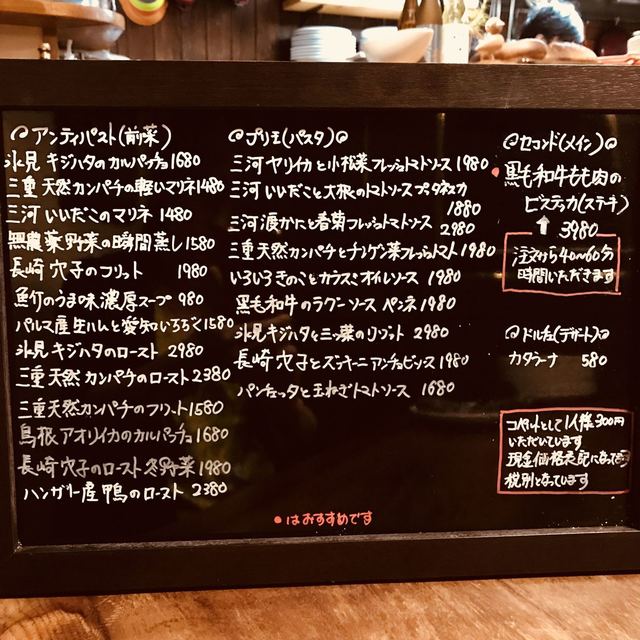 アンティパスト(前菜)
氷見 キジハタのカルパッチョ 1680
三重 天然カンパチの軽いマリネ 1480
三河 いいだこのマリネ 1480
無農薬野菜の瞬間蒸し 1580
長崎 穴子のフリット 1980
魚介のうま味濃厚スープ 980
パルマ産生ハムと愛知いちぢく 1580
氷見 キジハタのロースト 2980
三重 天然 カンパチのロースト 2380
三重天然カンパチのフリット 1580
島根 アオリイカのカルパッチョ 1680
長崎 穴子のロースト 冬野菜 1980
ハンガリー産 鴨のロースト 2380
プリモ(パスタ)
三河 ヤリイカと小松菜フレッシュトマトソース 1980
三河 いいだこと大根のトマトソース プッタネスカ
1880
三河 渡かにと春菊フレッシュトマトソース
2980
三重 天然カンパチとチンゲン菜フレッシュトマト 1980
いろいろきのことカラスミオイルソース 1980
黒毛和牛のラグーソース ペンネ 1980
氷見 キジハタと三つ葉のリゾット 2980
長崎 穴子とズッキーニ アンチョビソース 1980
パンチェッタと玉ねぎトマトソース 1680
セコンド(メイン)
黒毛和牛もも肉の
ビステッカ(ステーキ)
↑ 3980
注文から40〜60分
時間いただきます
ドルチェ(デザート)
カタラーナ 580
コペルトとして1人様300円
いただいています
現金価格表記になってます
税別になっています
• はおすすめです